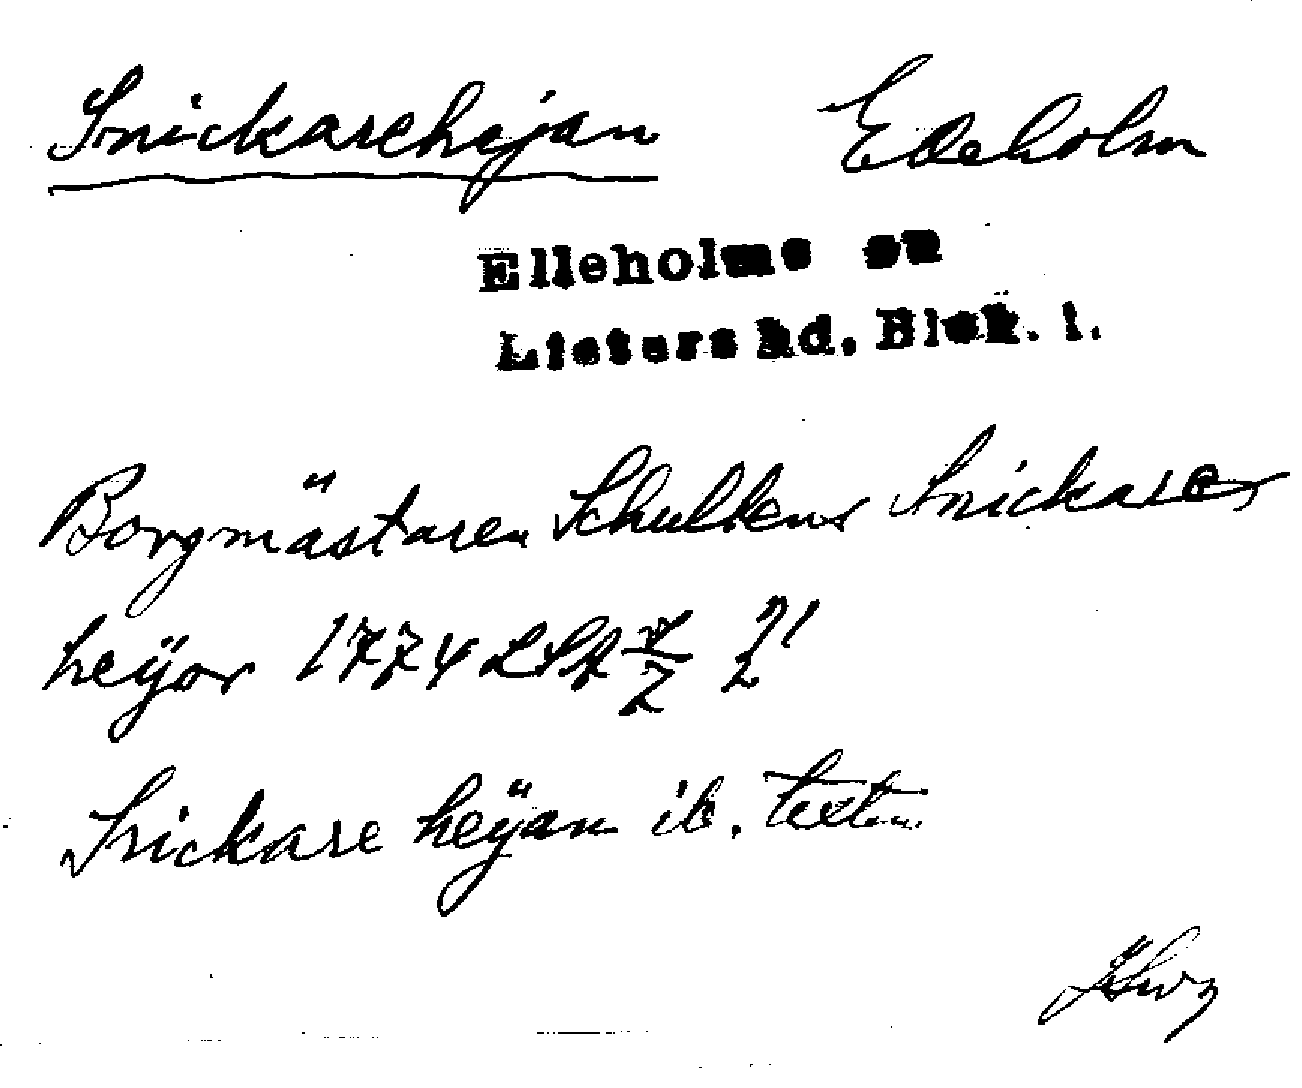 Snickarehejan Elleholm
Elleholms sn
Listers hd. Blek. l.
Borgmästaren Schultens Snickare
heÿor 1774 LSA 21
Snickare heÿan ib. texten